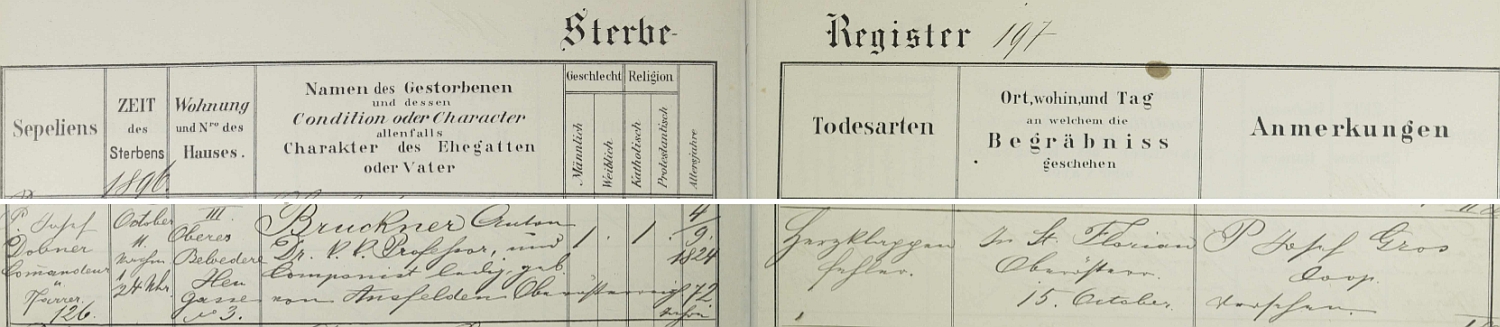 Sterbe-
Register 197
Sepeliens
ZEIT
des
Sterbens
1896
Wohnung
und Nro des
Hauses.
Namen des Gestorbenen
und dessen
Condition oder Character
allenfalls
Charakter des Ehegatten
oder Vater
Geschlecht
Männlich
Weiblich
Religion
Katholisch
Protestantisch
Altersjahre
Todesarten
Ort, wohin, und Tag
an welchem die
Begräbniss
geschehen
Anmerkungen
P. Josef
Dobner
Comandeur
u.
Pfarrer.
126.
October
11.
Nachm
24 Uhr.
III.
Oberes
Belvedere
Heu
gasse
No 3.
Bruckner Anton
Dr. k. k. Professor, und
Componist ledig, geb.
von Ansfelden Oberösterreich
1
.
1
.
4/9.
1824
72
Jahre
Herzklappen
fehler.
In St. Florian
Oberösterr.
15. October.
P Josef Gros
Coop.
versehen.